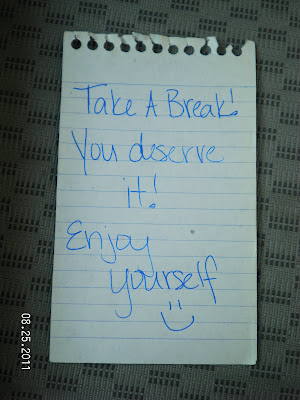 Take A Break!
You deserve
it!
Enjoy
yourself
08.25.2011